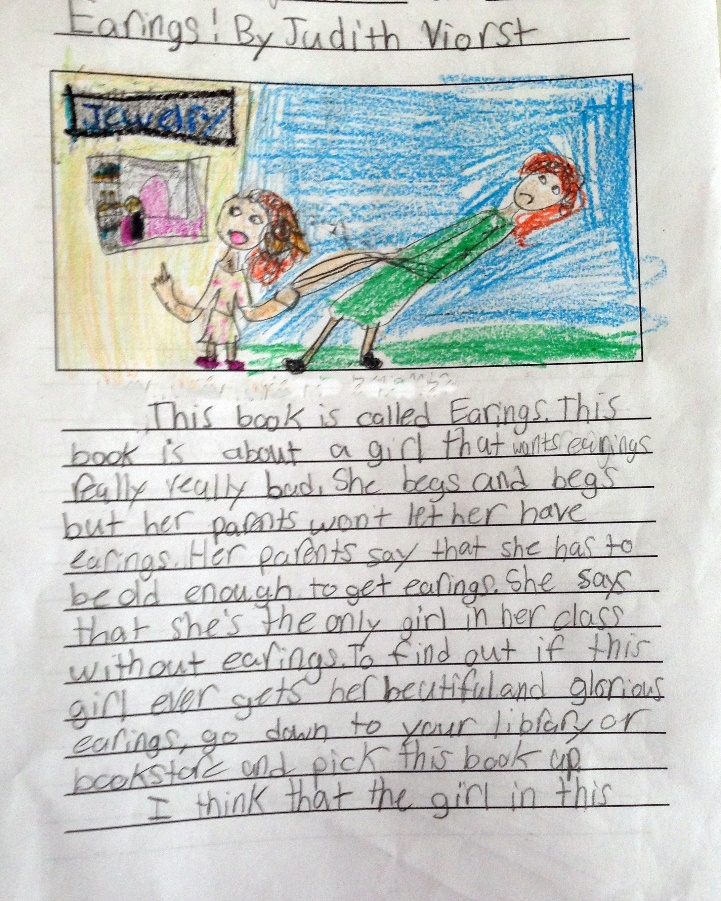 Earings! By Judith Viorst
Jewelry
This book is called Earings. This
book is about a girl that wonts earings
really really bad. She begs and begs
but her parents won't let her have
earings. Her parents say that she has to
be old enough to get earings. She says
that she's the only girl in her class
without earings. To find out if this
girl ever gets her beutiful and glorious
earings, go down to your library or
bookstore and pick this book up
I think that the girl in this